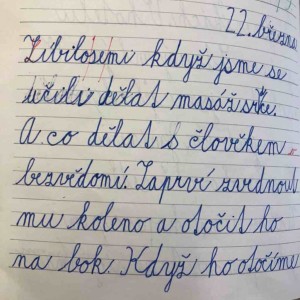 22. března
Líbilosemi když jsme se
učili dělat masáž srce.
A co dělat s člověkem
bezvědomí. Zaprví zvednout
mu koleno a otočit ho
na bok. Když ho otočíme